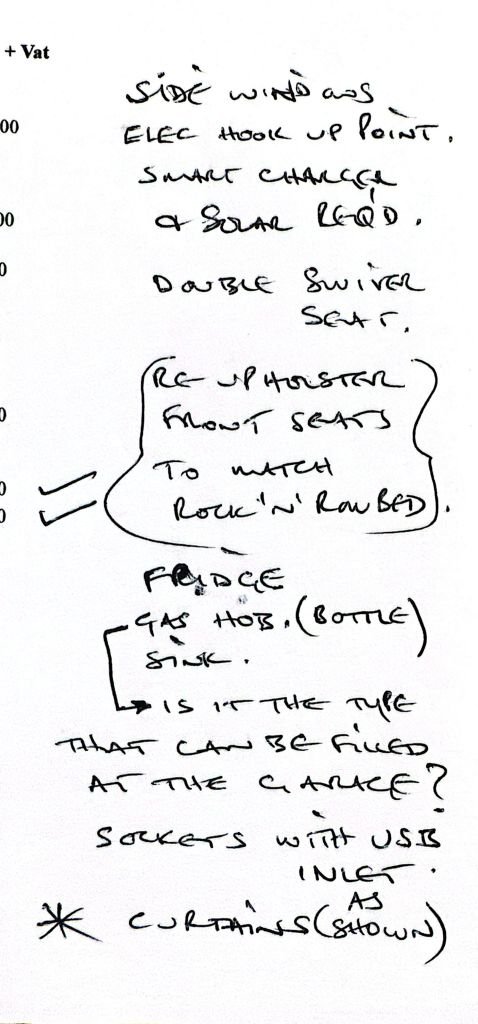 + Vat
SIDE WINDOWS
00
ELEC HOOK UP POINT.
SMART CHARGER
00
& SOLAR REQ'D.
0
DOUBLE SWIVER
SEAT.
RE-UPHOLSTER
0
FRONT SEATS
TO MATCH
0
ROCK 'N' ROW BED.
0
FRIDGE
GAS HOB. (BOTTLE)
SINK.
IS IT THE TYPE
THAT CAN BE FILLED
AT THE GARAGE?
SOCKETS WITH USB
INLET.
* CURTAINS (AS SHOWN)